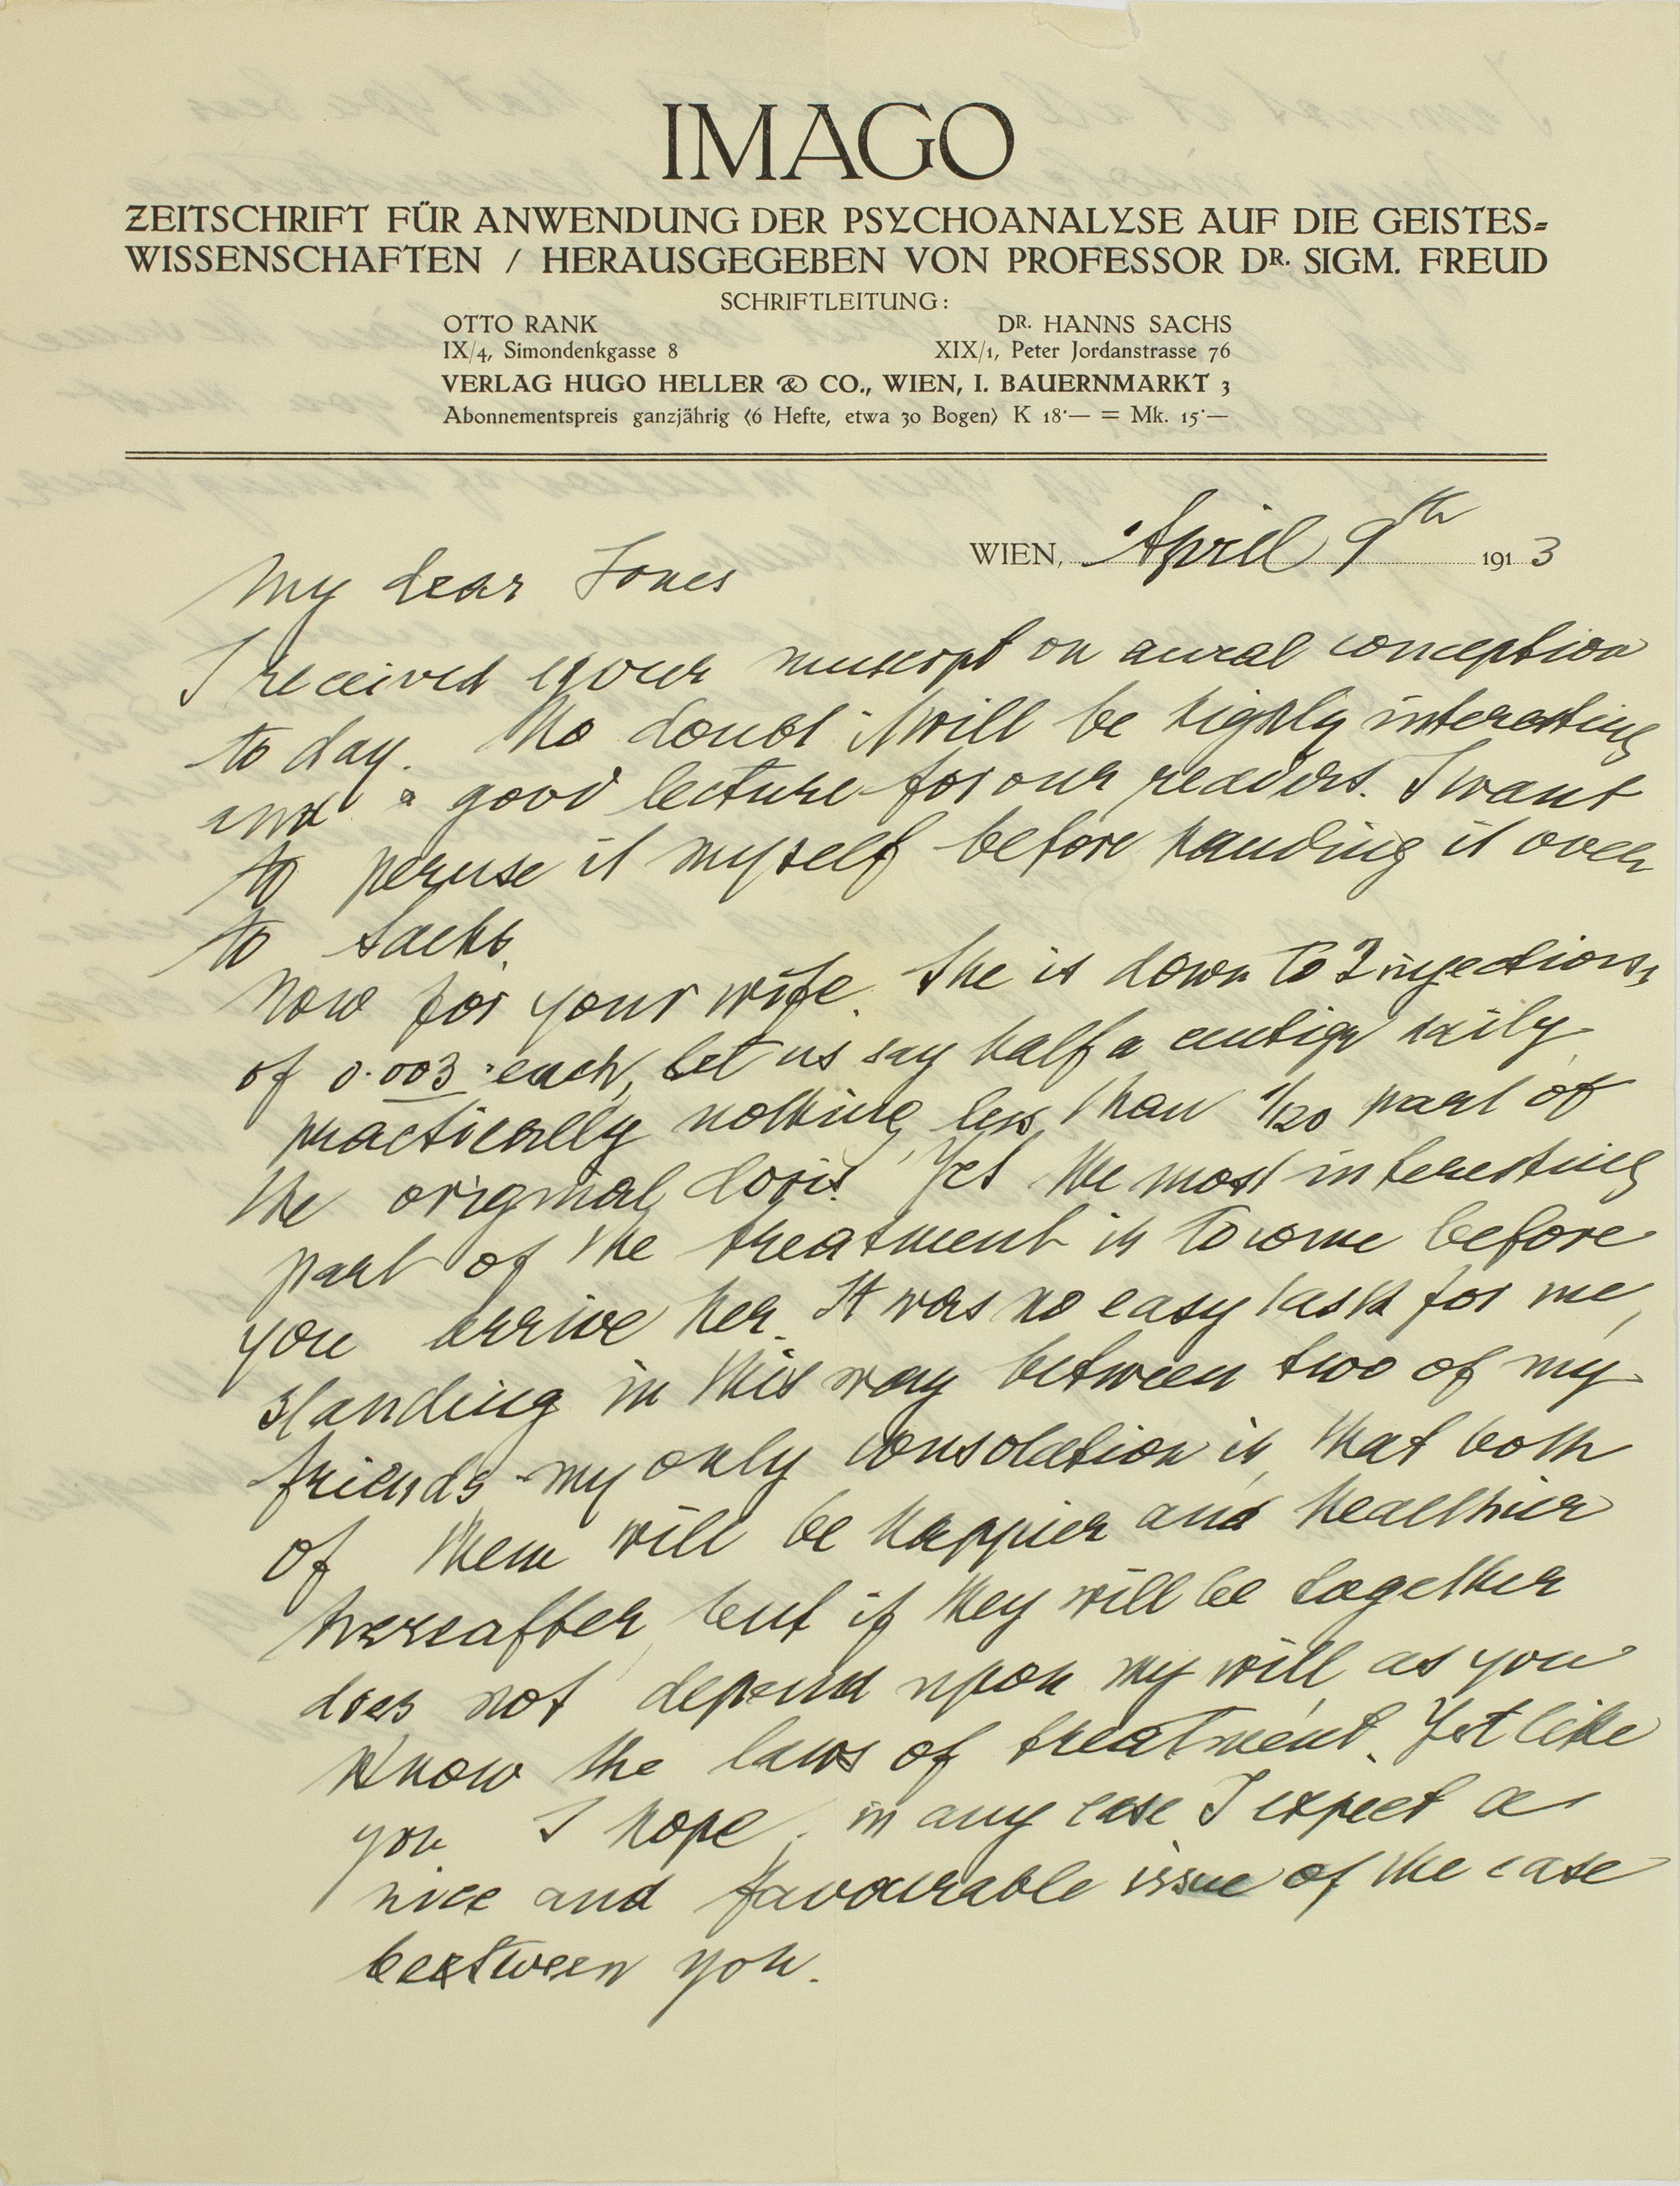 IMAGO
ZEITSCHRIFT FÜR ANWENDUNG DER PSYCHOANALYSE AUF DIE GEISTES-
WISSENSCHAFTEN / HERAUSGEGEBEN VON PROFESSOR DR. SIGM. FREUD
SCHRIFTLEITUNG:
OTTO RANK DR. HANNS SACHS
IX/4, Simondenkgasse 8 XIX/1, Peter Jordanstrasse 76
VERLAG HUGO HELLER & CO., WIEN, I. BAUERNMARKT 3
Abonnementspreis ganzjährig (6 Hefte, etwa 30 Bogen) K 18·— = Mk. 15·—
WIEN, April 9th 1913
My dear Jones
I received your muscript on aural conception
to day. No doubt it will be highly interesting
and a good lecture for our readers. I want
to peruse it myself before handing it over
to Sachs.
Now for your wife. She is down to 2 injections
of 0.003 each, let us say half a centigr daily,
practically nothing, less than 1/120 part of
the original dosis. Yet the most interesting
part of the treatment is to come before
you arrive her. It was no easy task for me,
standing in this way between two of my
friends, my only consolation is, that both
of them will be happier and healthier
hereafter, but if they will be together
does not depend upon my will as you
know the laws of treatment. Yet like
you I hope, in any case I expect a
nice and favourable issue of the case
between you.